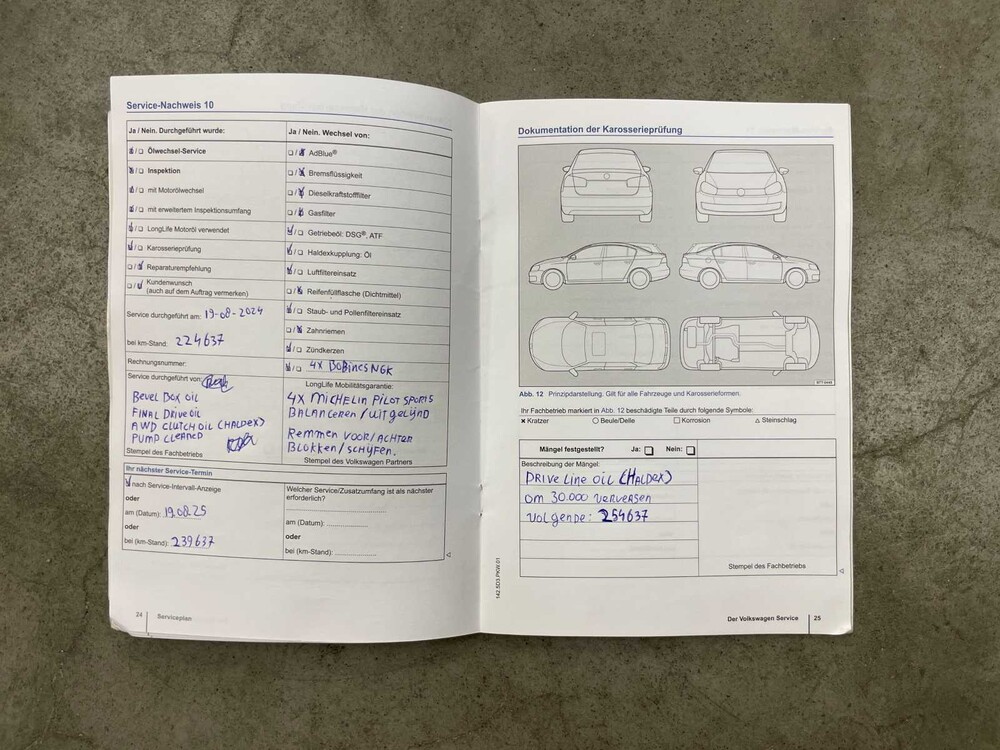 Service-Nachweis 10
Ja / Nein. Durchgeführt wurde:
Ölwechsel-Service
Inspektion
mit Motorölwechsel
mit erweitertem Inspektionsumfang
LongLife Motoröl verwendet
Karosserieprüfung
Reparaturempfehlung
Kundenwunsch
(auch auf dem Auftrag vermerken)
Service durchgeführt am: 19-08-2024
bei km-Stand: 224637
Rechnungsnummer:
Service durchgeführt von:
Bevel Box oil
FINAL DRIVE OIL
AWD CLUTCH OIL (HALDEX)
PUMP CLEANED
Stempel des Fachbetriebs
Ja / Nein. Wechsel von:
AdBlue®
Bremsflüssigkeit
Dieselkraftstofffilter
Gasfilter
Getriebeöl: DSG®, ATF
Haldexkupplung: Öl
Luftfiltereinsatz
Reifenfüllflasche (Dichtmittel)
Staub- und Pollenfiltereinsatz
Zahnriemen
Zündkerzen
4X BOBINES NGK
LongLife Mobilitätsgarantie:
4X MICHELIN PILOT SPORT5
BALANCEREN / UITGELIJND
Remmen VOOR/ACHTER
BLOKKEN/SCHIJFEN.
Stempel des Volkswagen Partners
Ihr nächster Service-Termin
nach Service-Intervall-Anzeige
oder
am (Datum): 19.08.25
oder
bei (km-Stand): 239637
Welcher Service/Zusatzumfang ist als nächster
erforderlich?
am (Datum):
oder
bei (km-Stand):
24 Serviceplan
Dokumentation der Karosserieprüfung
Abb. 12 Prinzipdarstellung. Gilt für alle Fahrzeuge und Karosserieformen.
Ihr Fachbetrieb markiert in Abb. 12 beschädigte Teile durch folgende Symbole:
× Kratzer ○ Beule/Delle □ Korrosion △ Steinschlag
Mängel festgestellt? Ja: Nein:
Beschreibung der Mängel:
DRIVE LINE OIL (HALDEX)
OM 30.000 VERVERSEN
VOLGENDE: 254637
Stempel des Fachbetriebs
142.5D3.PKW.01
Der Volkswagen Service 25